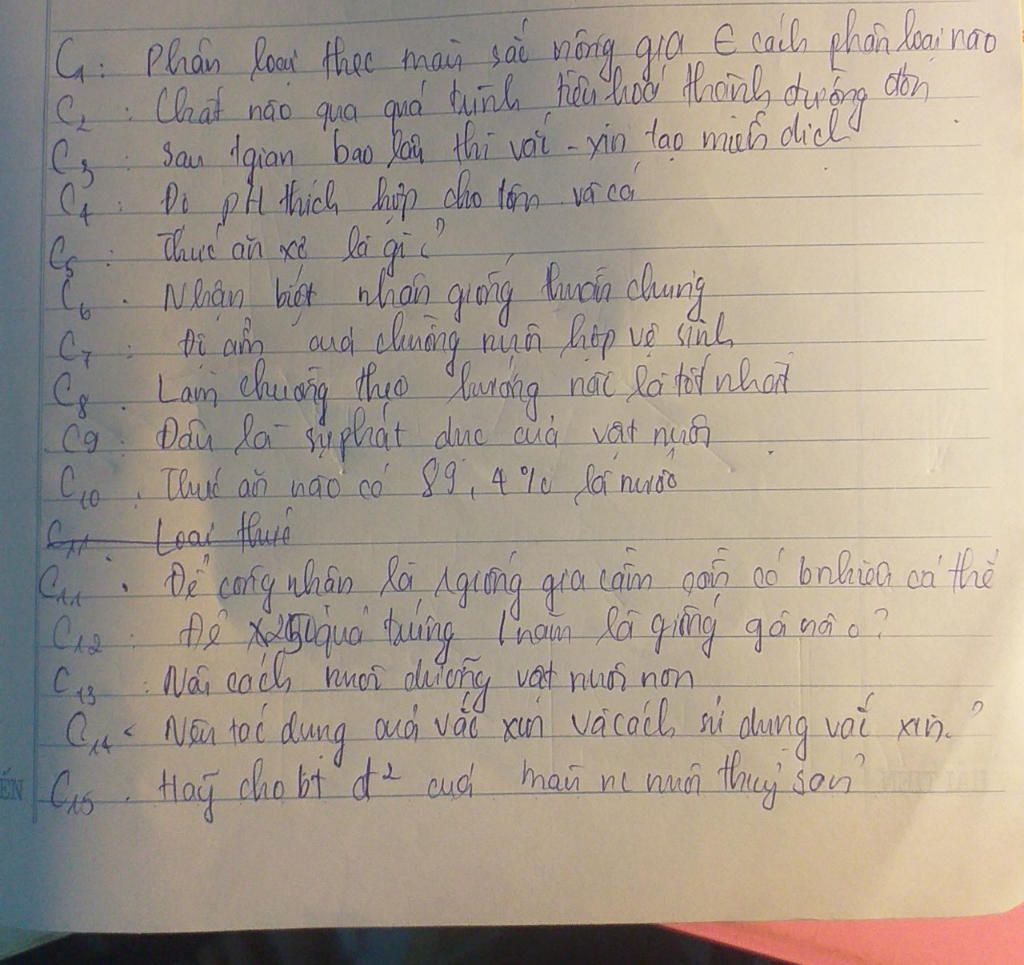 C1: Phân loại theo màu sắc nông gia ∈ cách phân loại nào
C2: Chất nào qua quá trình tiêu hoá thành đường đơn
C3: Sau tgian bao lâu thì vắc-xin tạo miễn dịch
C4: Độ pH thích hợp cho tôm và cá
C5: Thức ăn xơ là gì?
C6. Nhận biết nhân giống thuần chủng
C7: Độ ẩm của chuồng nuôi hợp vệ sinh
C8. Làm chuồng theo hướng nào là tốt nhất
C9: Đâu là sự phát dục của vật nuôi
C10. Thức ăn nào có 89,4% là nước
Loại thức
C11. Để công nhận là 1 giống gia cầm cần có bnhiêu cá thể
C12: Đẻ 250 quả trứng 1 năm là giống gà nào?
C13: Nêu cách nuôi dưỡng vật nuôi non
C14: Nêu tác dụng của vắc xin và cách sử dụng vắc xin?
C15. Hãy cho bt đ² của màu nc nuôi thuỷ sản?